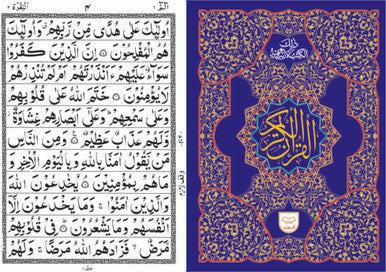 البقرة ٢
٤
الٓمّٓ ١
اُولٰٓئِكَ عَلٰی هُدًی مِّنْ رَّبِّهِمْ ۗ وَاُولٰٓئِكَ
هُمُ الْمُفْلِحُوْنَ ۝ اِنَّ الَّذِيْنَ كَفَرُوْا
سَوَآءٌ عَلَيْهِمْ ءَاَنْذَرْتَهُمْ اَمْ لَمْ تُنْذِرْهُمْ
لَا يُؤْمِنُوْنَ ۝ خَتَمَ اللّٰهُ عَلٰی قُلُوْبِهِمْ
وَعَلٰی سَمْعِهِمْ ۗ وَعَلٰٓی اَبْصَارِهِمْ غِشَاوَةٌ ۫
وَّلَهُمْ عَذَابٌ عَظِيْمٌ ۝ وَمِنَ النَّاسِ
مَنْ يَّقُوْلُ اٰمَنَّا بِاللّٰهِ وَبِالْيَوْمِ الْاٰخِرِ وَ
مَا هُمْ بِمُؤْمِنِيْنَ ۝ يُخٰدِعُوْنَ اللّٰهَ
وَالَّذِيْنَ اٰمَنُوْا ۚ وَمَا يَخْدَعُوْنَ اِلَّآ
اَنْفُسَهُمْ وَمَا يَشْعُرُوْنَ ۝ فِیْ قُلُوْبِهِمْ
مَّرَضٌ ۙ فَزَادَهُمُ اللّٰهُ مَرَضًا ۚ وَلَهُمْ
القرآن الكريم